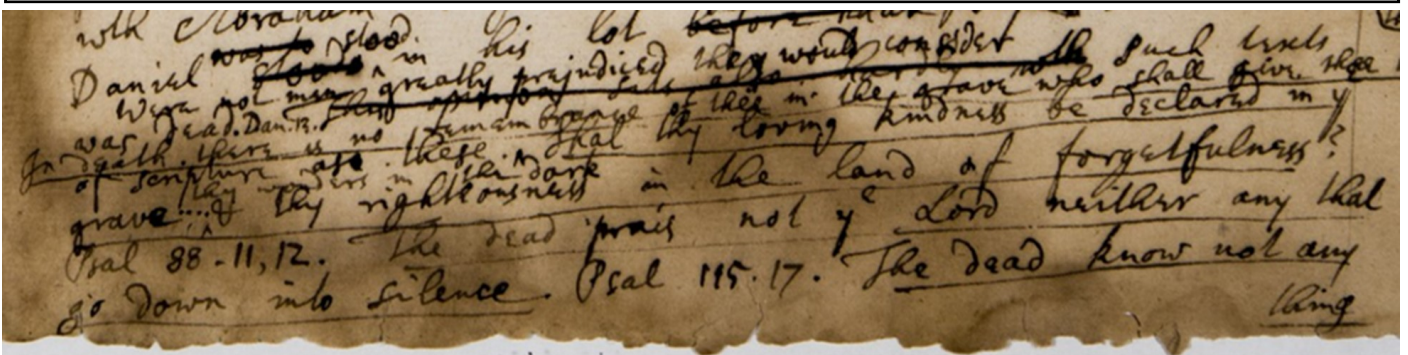 with Abraham
Daniel stood in his lot
Were not men greatly prejudiced they would consider such texts
was dead. Dan. 12.
In death there is no remembrance of thee in the grave who shall give thee
of scripture as these. Shal thy loving kindness be declared in y
thy wonders in the dark
grave .... & thy righteousness in the land of forgetfulness?
Psal 88. 11, 12. The dead prais not yᵉ Lord neither any that
go down into silence. Psal 115. 17. The dead know not any
thing